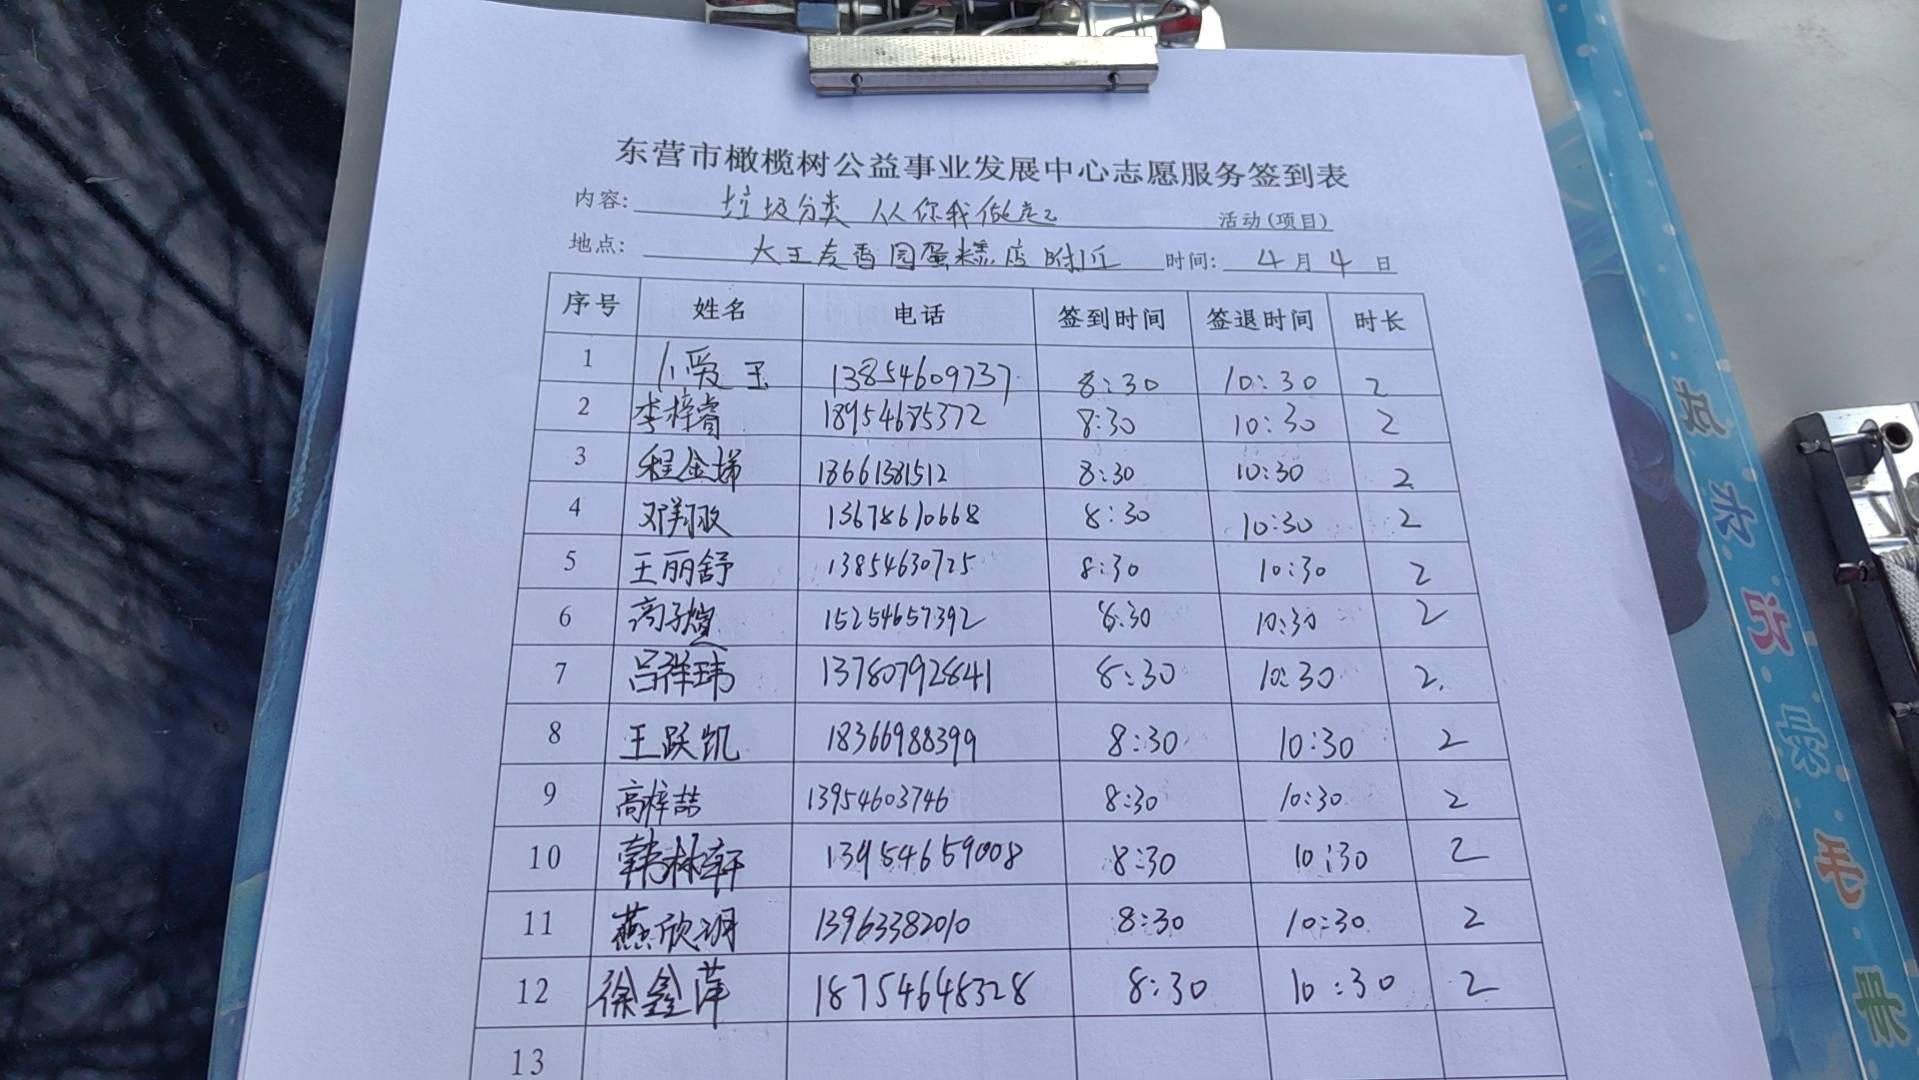 东营市橄榄树公益事业发展中心志愿服务签到表
内容: 垃圾分类 从你我做起 活动(项目)
地点: 大王友香园蛋糕店附近 时间: 4月4日
序号 姓名 电话 签到时间 签退时间 时长
1 爱玉 13854609737 8:30 10:30 2
2 李梓睿 18954685372 8:30 10:30 2
3 程金娣 18661381512 8:30 10:30 2
4 邓翔 13678610668 8:30 10:30 2
5 王丽舒 13854630725 8:30 10:30 2
6 高子煊 15254657392 8:30 10:30 2
7 吕祥玮 13780792841 8:30 10:30 2
8 王跃凯 18366988399 8:30 10:30 2
9 高梓喆 13954603746 8:30 10:30 2
10 韩林轩 13954659008 8:30 10:30 2
11 燕欣玥 13963382010 8:30 10:30 2
12 徐鑫萍 18754648328 8:30 10:30 2
13
成长记录手册